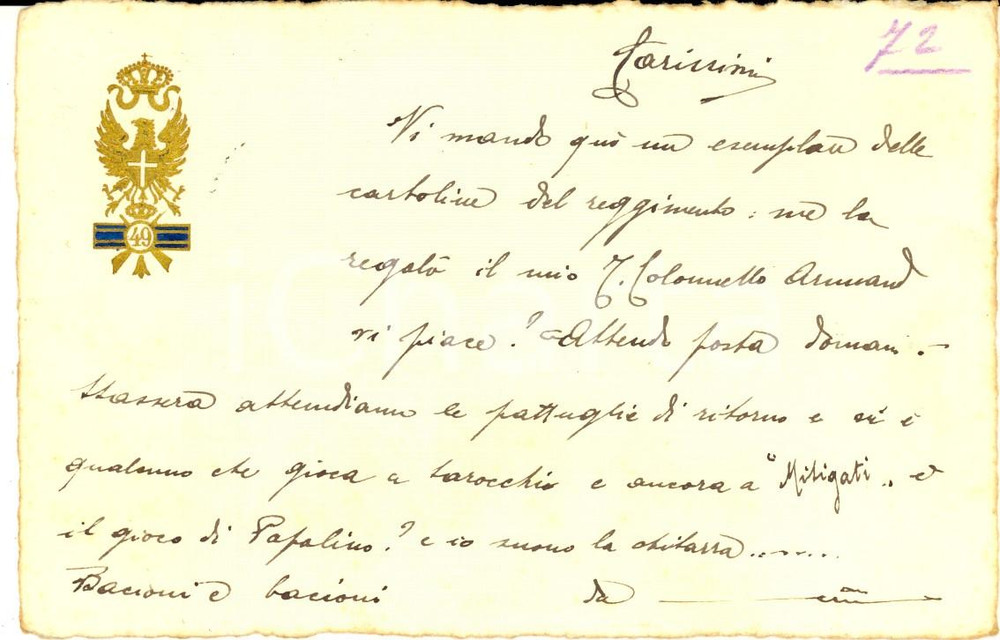 72
Carissimi
Vi mando quì un esemplare delle
cartoline del reggimento: me la
regalò il mio T. Colonnello Armand
vi piace? = Attendo posta domani. -
Stassera attendiamo le pattuglie di ritorno e vi è
qualcuno che gioca a tarocchi e ancora a "Mitigati.. è
il gioco di Papalino? e io suono la chitarra.........
Bacioni e bacioni da
49
iCharta